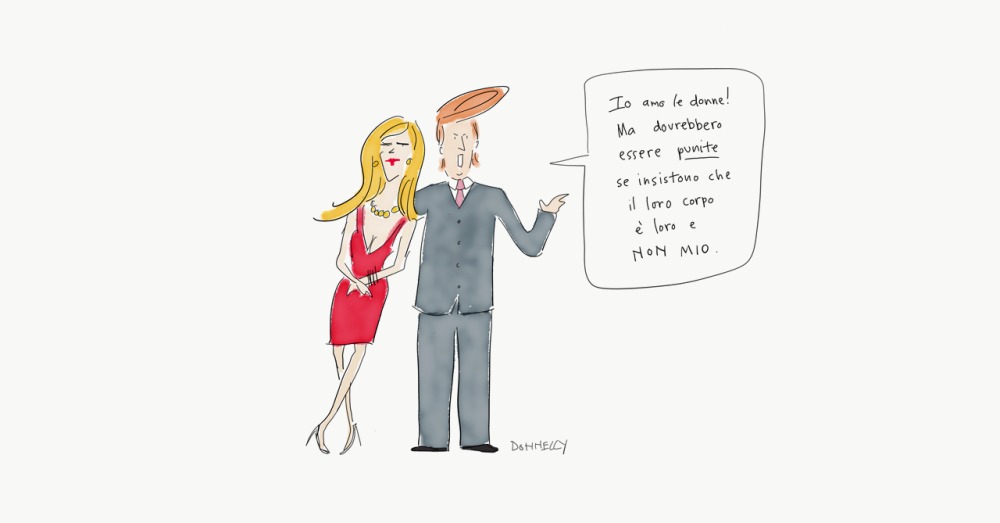 Io amo le donne!
Ma dovrebbero
essere punite
se insistono che
il loro corpo
è loro e
NON MIO.
DONNELLY